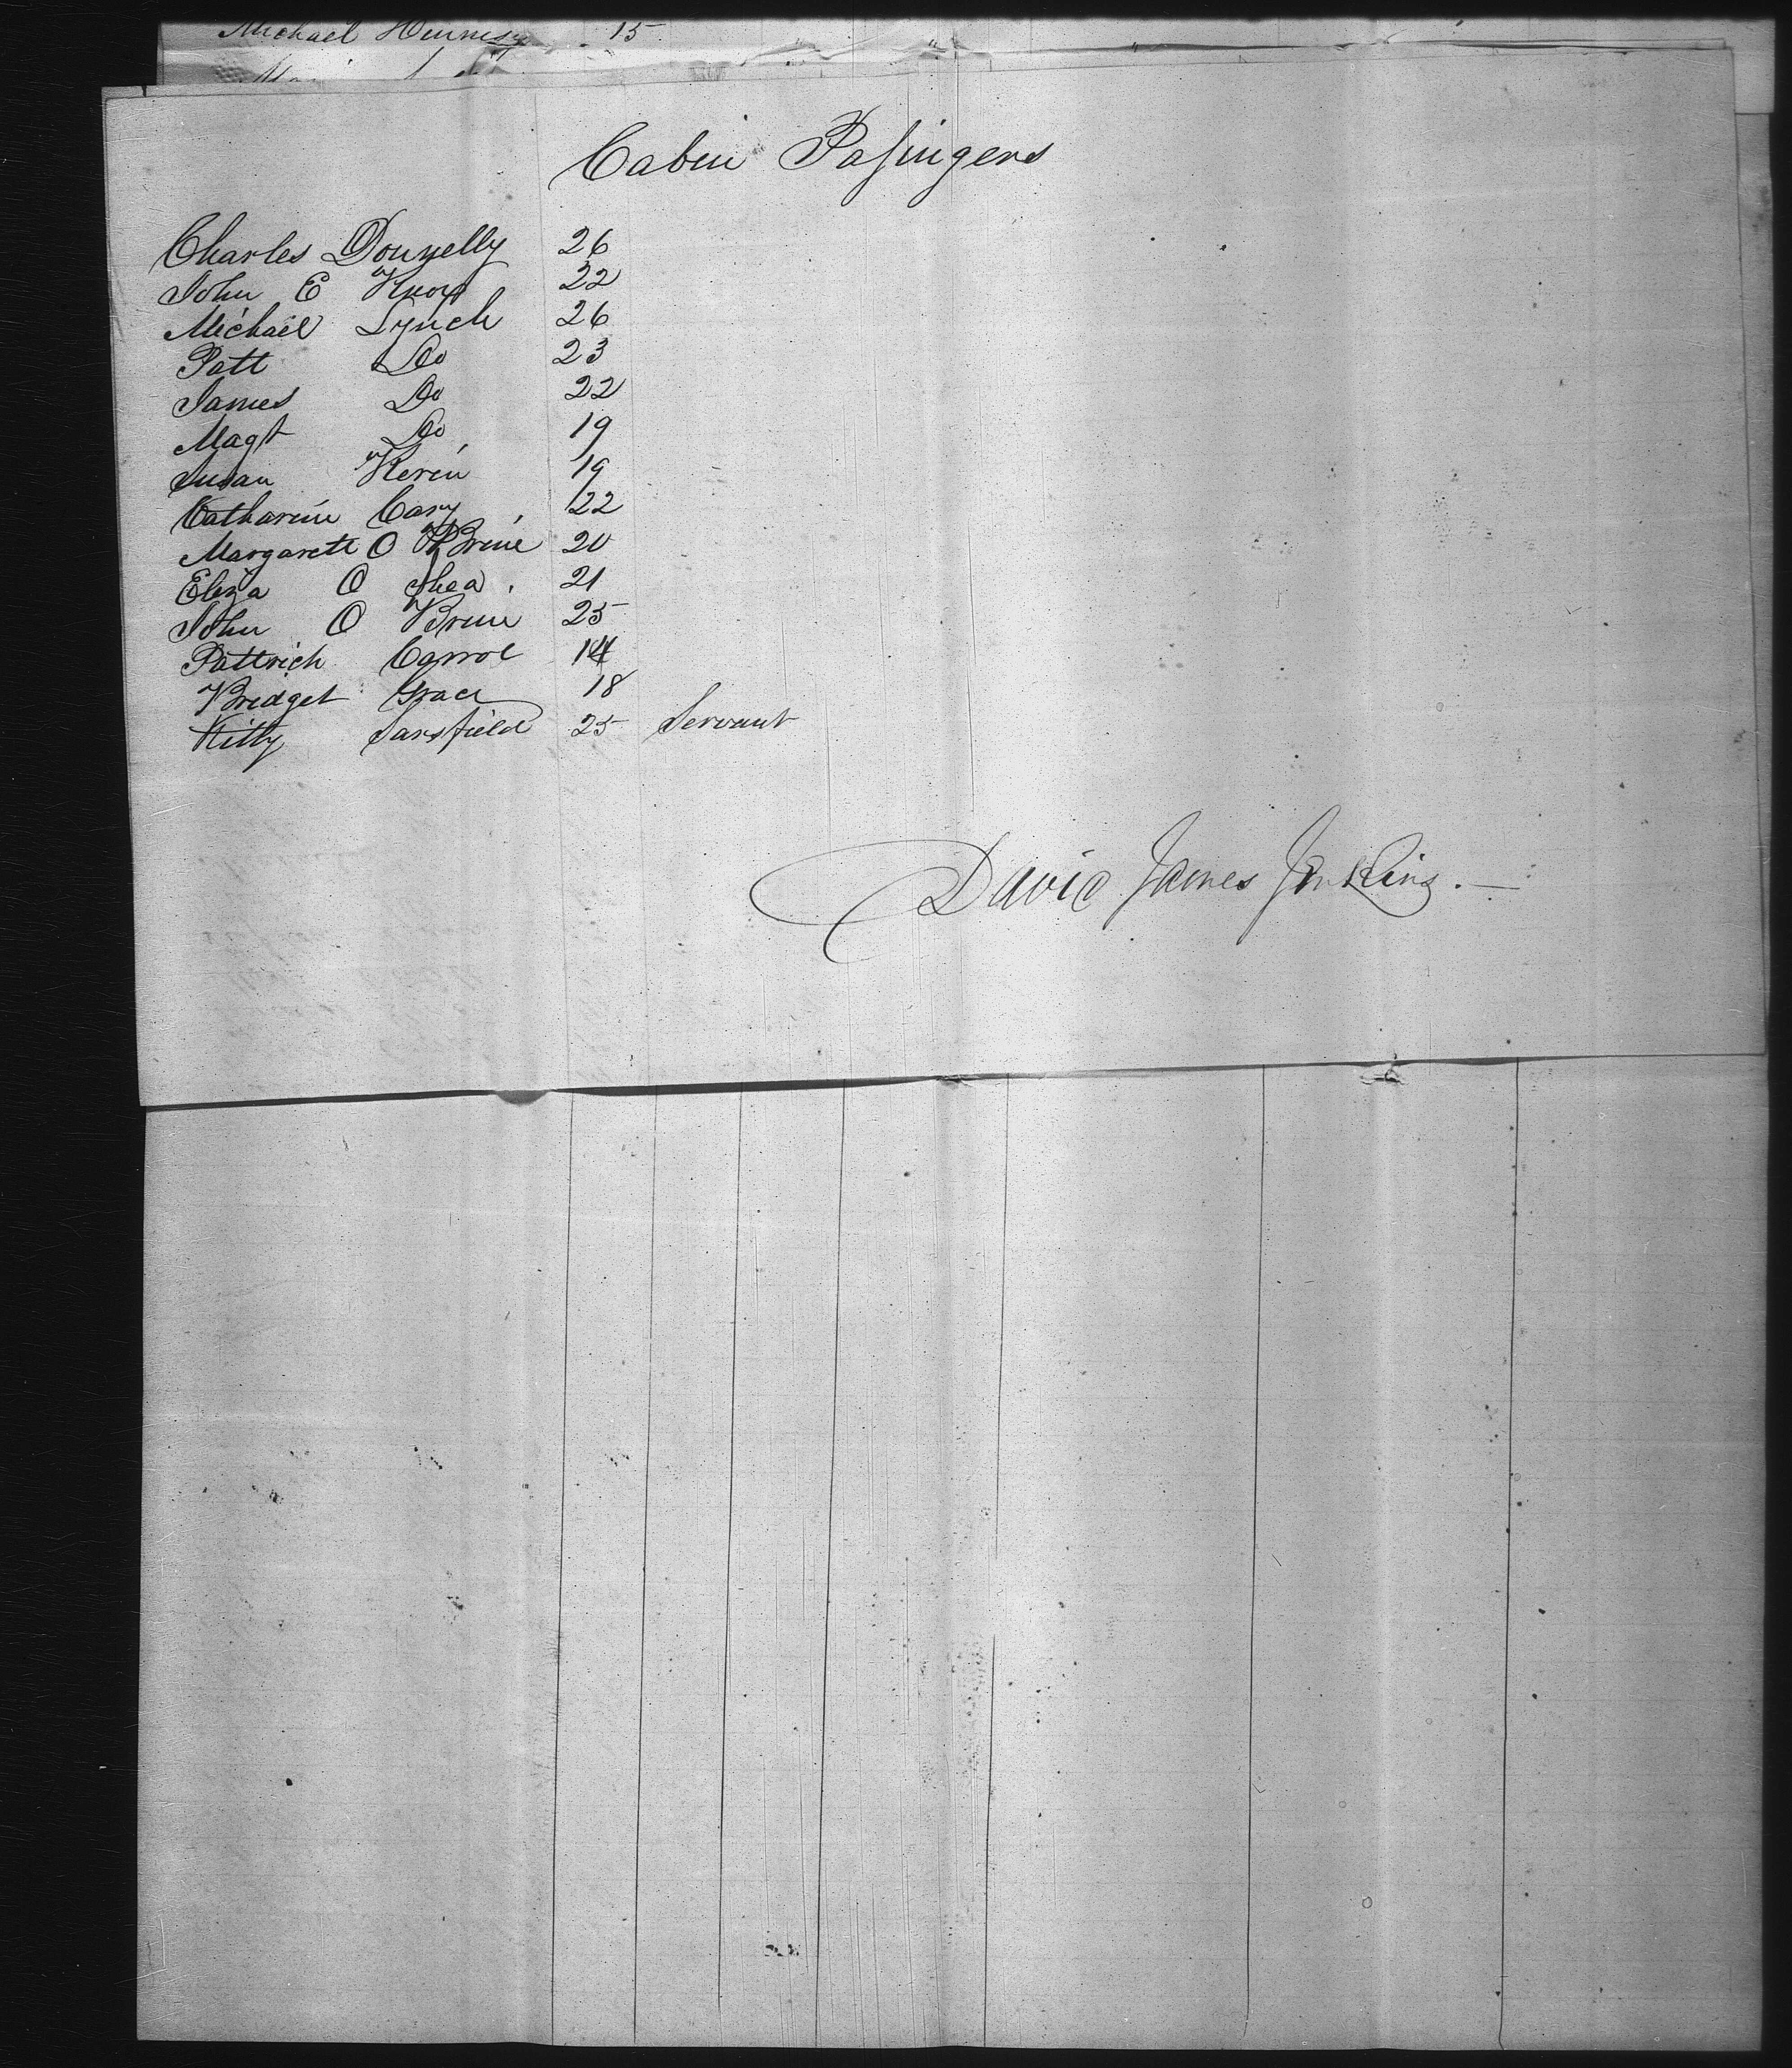 Michael Hennesy 15
Cabin Passingers
Charles Donnelly 26
John E Knox 22
Michael Lynch 26
Patt Do 23
James Do 22
Magt Do 19
Susan Kerin 19
Catharine Cary 22
Margarett O Brine 20
Eliza O Shea 21
John O Brine 25
Pattrich Carrol 14
Bridget Grace 18
Kitty Sarsfield 25 Servant
David James Jenkins.